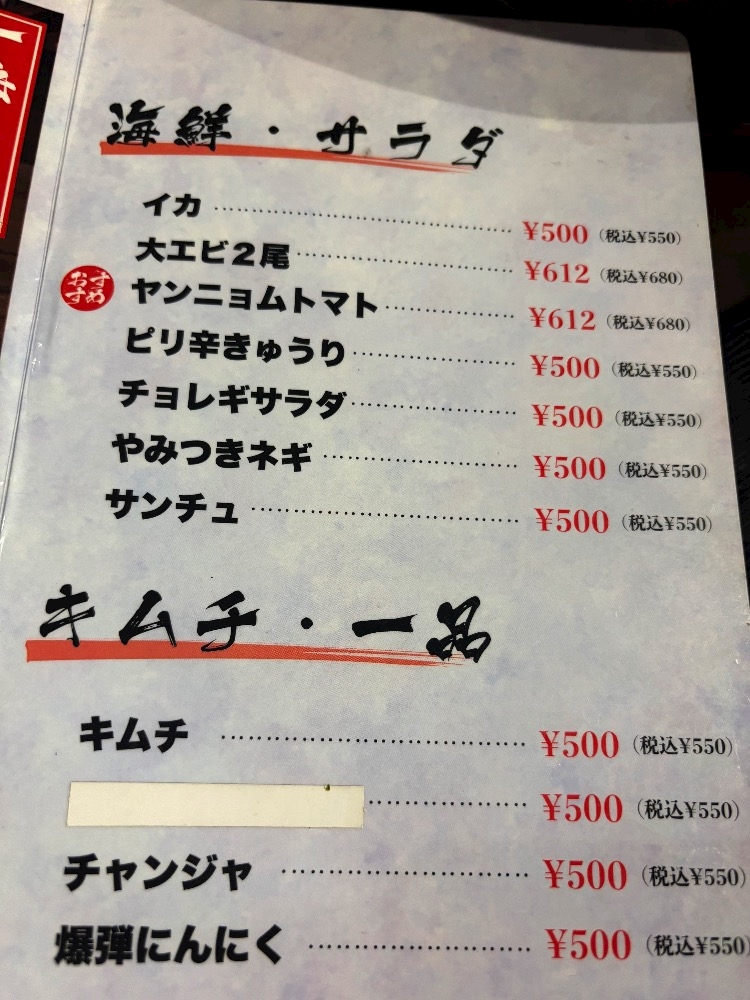 海鮮・サラダ
イカ ¥500 (税込¥550)
大エビ2尾 ¥612 (税込¥680)
おすすめ ヤンニョムトマト ¥612 (税込¥680)
ピリ辛きゅうり ¥500 (税込¥550)
チョレギサラダ ¥500 (税込¥550)
やみつきネギ ¥500 (税込¥550)
サンチュ ¥500 (税込¥550)
キムチ・一品
キムチ ¥500 (税込¥550)
¥500 (税込¥550)
チャンジャ ¥500 (税込¥550)
爆弾にんにく ¥500 (税込¥550)